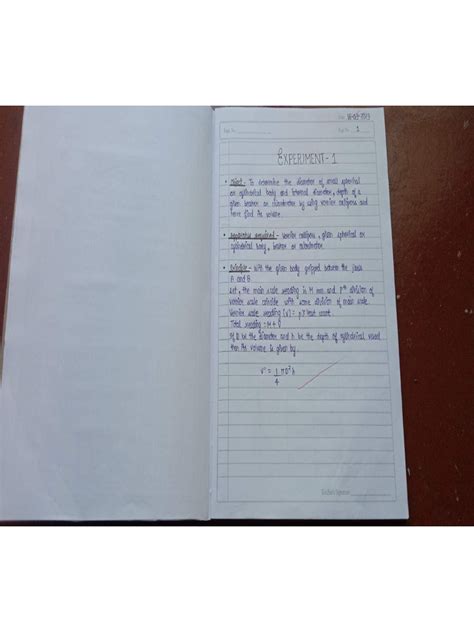 Page No. 1
EXPERIMENT-1
• Object:- To determine the diameter of small spherical
or cylindrical body and internal diameter, depth of a
given beaker or calorimeter by using vernier callipers and
hence find its volume.
• Apparatus required:- Vernier callipers, given spherical or
cylindrical body, beaker or calorimeter.
• Principle:- with the given body gripped between the jaws
A and B
Let, the main scale reading is M mm and Pth division of
vernier scale coincide with some division of main scale.
Vernier scale reading (v) = p x least count
Total reading = M + V
D be the diameter and h be the depth of cylindrical vessel
then its volume is given by
V = 1/4 πD²h
Teacher's Signature